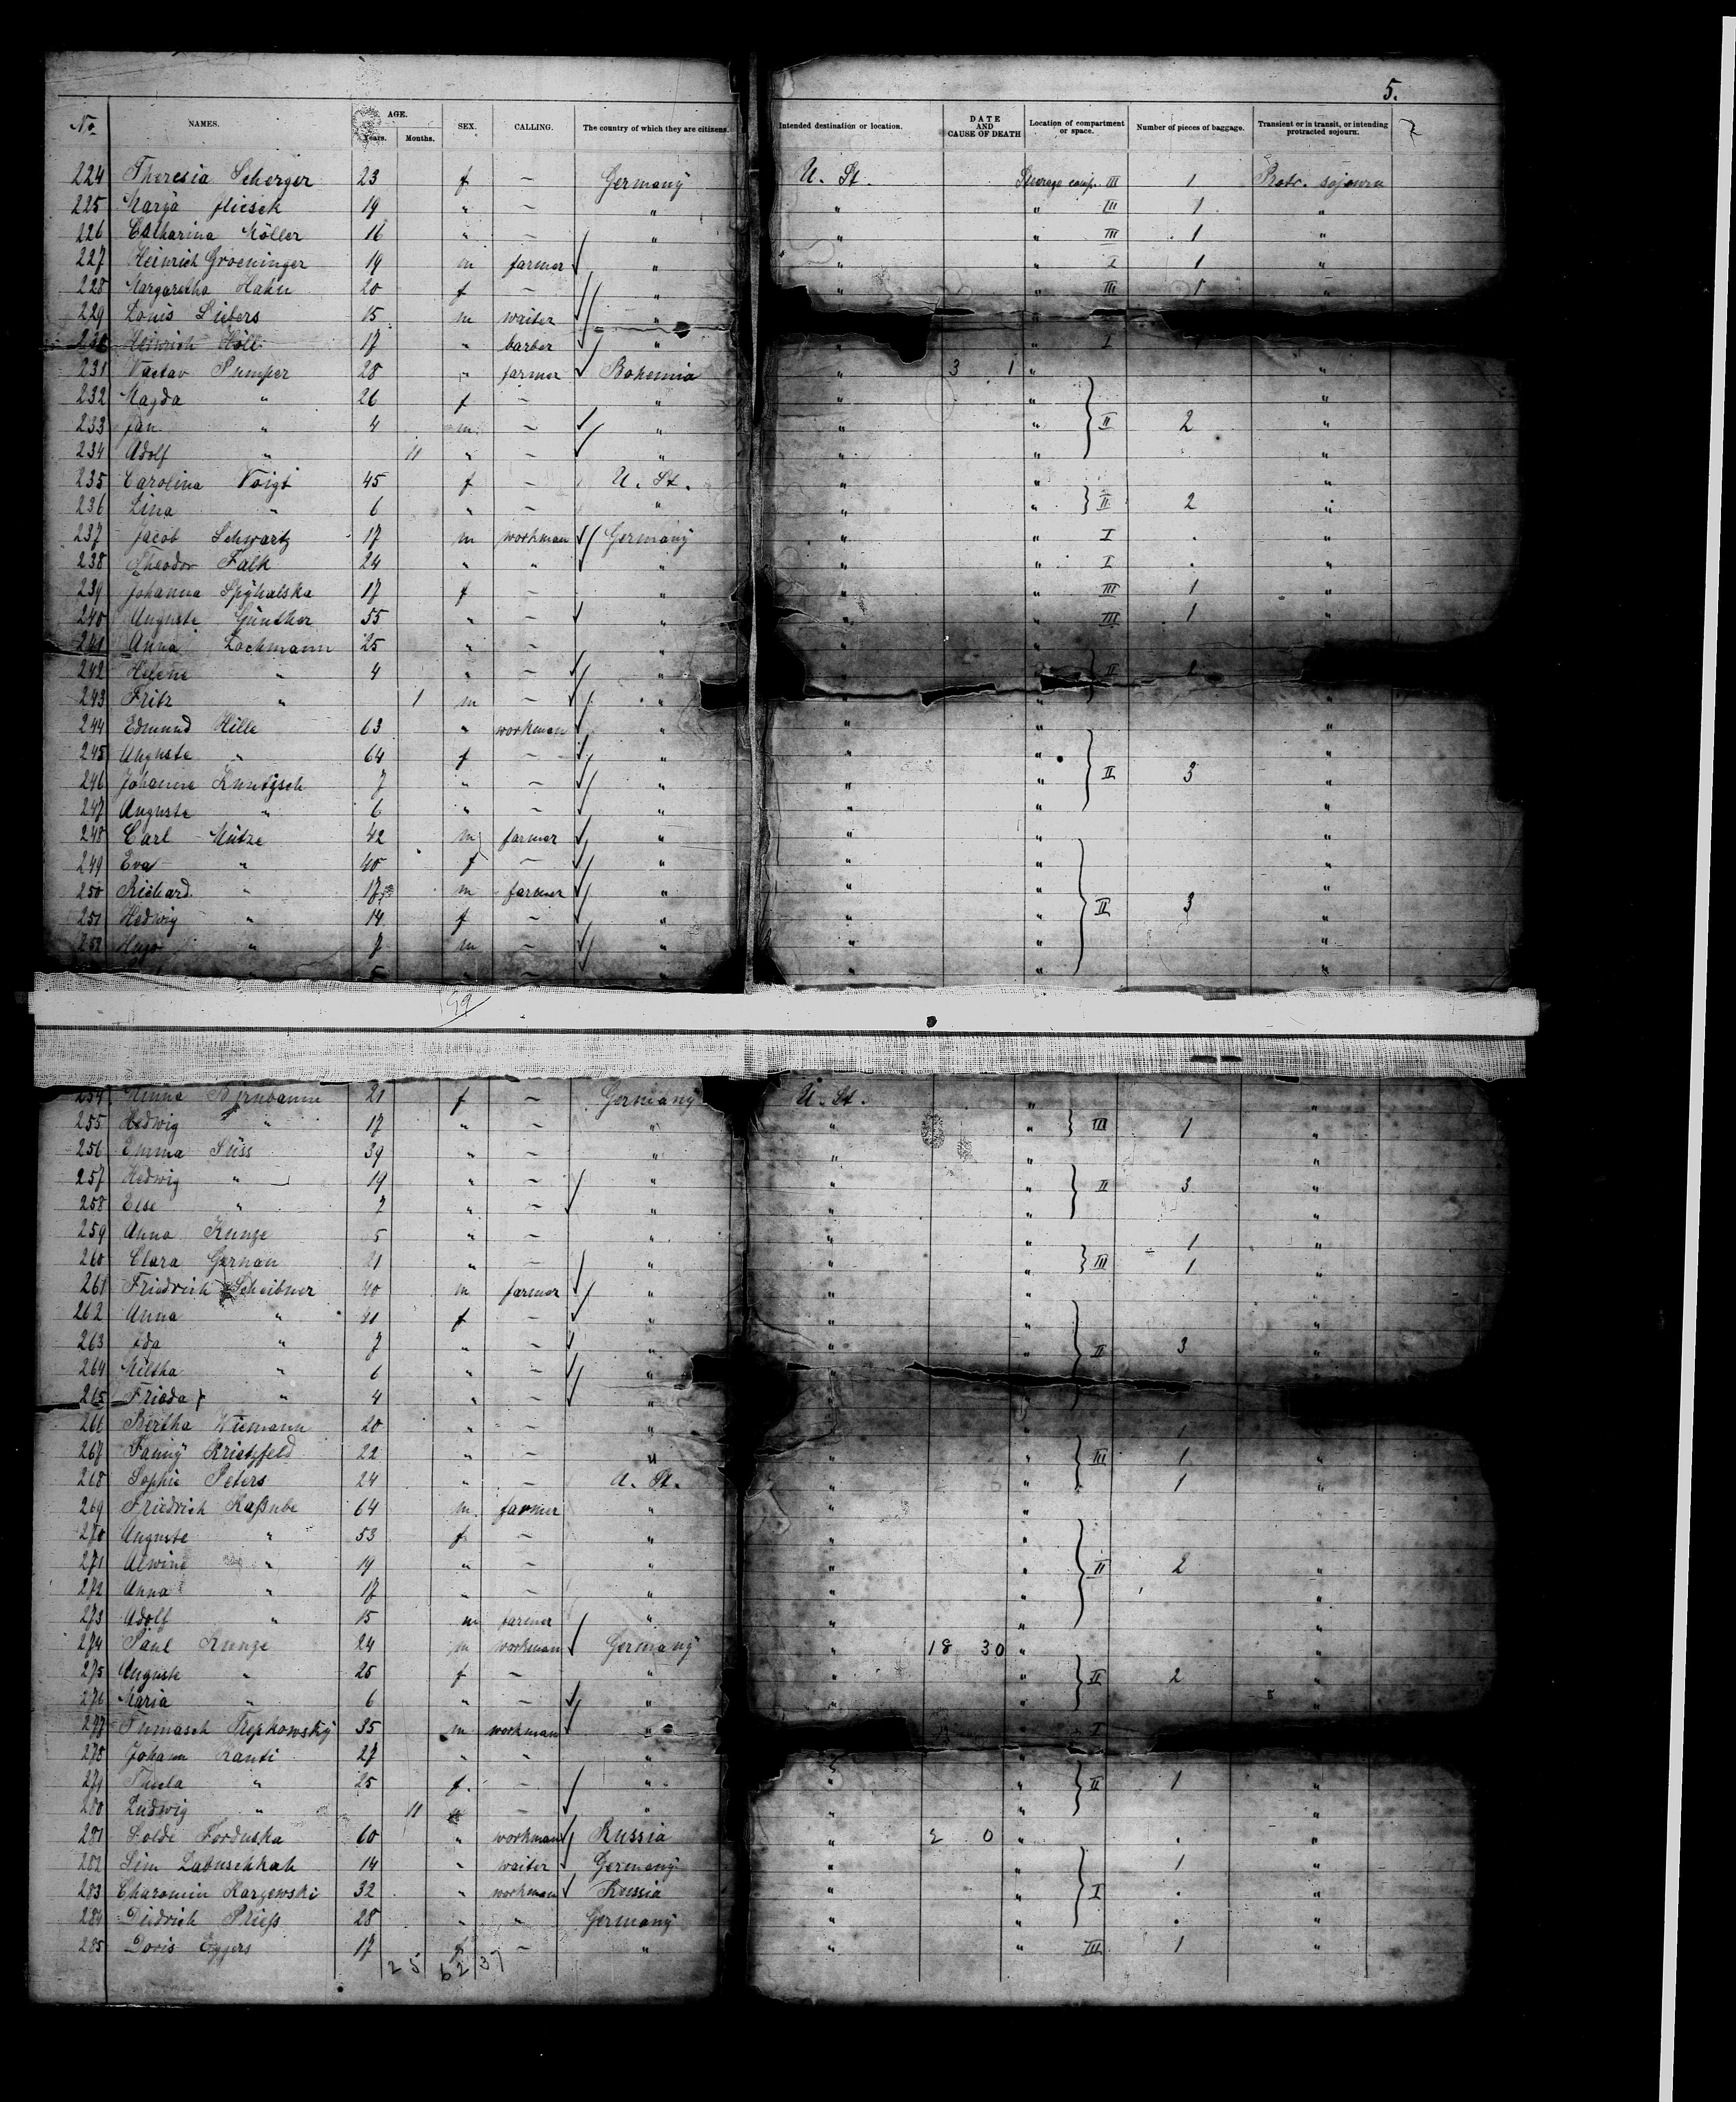 5.
No. NAMES. AGE. Years. Months. SEX. CALLING. The country of which they are citizens. Intended destination or location. DATE AND CAUSE OF DEATH Location of compartment or space. Number of pieces of baggage. Transient or in transit, or intending protracted sojourn.
224 Theresia Scherger 23 f — Germany U. St. Steerage comp. III 1 Protr. sojourn
225 19 " — " " " III 1 "
226 Catharina Möller 16 " — " " " III 1 "
227 Heinrich Groeninger 19 m farmer " " " I 1 "
228 Margaretha Hahn 20 f — " " " III 1 "
229 Louis Siebers 15 m waiter "
Heinrich Höll 17 " barber " " " I "
231 Vaclav Pumper 28 " farmer Bohemia " 3 1 " "
232 Magda " 26 f — " " " "
233 Jan " 4 m — " " " II 2 "
234 Adolf " 11 " — " " " "
235 Carolina Voigt 45 f — U. St. " " "
236 Lina " 6 " — " " " II 2 "
237 Jacob Schwartz 17 m workman Germany " " I . "
238 Theodor Falk 24 " " " " " I . "
239 Johanna Spychalska 17 f — " " " III 1 "
240 Auguste Günther 55 " — " " " III 1 "
241 Anna Lochmann 25 " — " " " "
242 Helene " 4 " — " II 1
243 Fritz " 1 m — " " " "
244 Edmund Hille 63 " workman " " " "
245 Auguste " 64 f — " " " "
246 Johanne Kuntzsch 7 " — " " " II 3 "
247 Auguste " 6 " — " " " "
248 Carl Mütze 42 m farmer " " " "
249 Eva " 40 f — " " " "
250 Richard " 17 m farmer " " " "
251 Hedwig " 14 f — " " " II 3 "
252 Hugo " 7 m — " " " "
" 5 " — " " " "
254 Minna Birnbaum 21 f — Germany U. St. " "
255 Hedwig " 17 " — " " " III 1 "
256 Emma Süss 39 " — " " " "
257 Hedwig " 14 " — " " " II 3 "
258 Else " 7 " — " " " "
259 Anna Kunze 5 " — " " " 1 "
260 Clara Gernan 21 " — " " " III 1 "
261 Friedrich Scheibner 40 m farmer " " " "
262 Anna " 41 f — " " " "
263 Ida " 7 " — " " " II 3 "
264 " 6 " — "
265 Frieda " 4 " — " " " "
266 Bertha 20 " — " " "
267 Fanny 22 " — " " " III 1 "
268 Sophie Peters 24 " — U. St. " " 1 "
269 Friedrich Kaßube 64 m farmer " " " "
270 Auguste " 53 f — " " " "
271 Alwine " 19 " — " " " II 2 "
272 Anna " 17 " — " " " "
273 Adolf " 15 m farmer " " " "
274 Paul Kunze 24 m workman Germany " 18 30 " "
275 Auguste " 25 f — " " " II 2 "
276 Maria " 6 " — " " " "
277 35 m workman " " I
278 Johann Kanti 27 " " " " " "
279 " 25 f — " " " II 1 "
280 Ludwig " 11 m — " " " "
281 60 " workman Russia " 2 0 " . "
282 14 " waiter Germany " " 1 "
283 32 " workman Russia " " I . "
284 Diedrich Prieß 28 " " Germany " " . "
285 Doris Eggers 17 f — " " " III 1 "
25 62 37